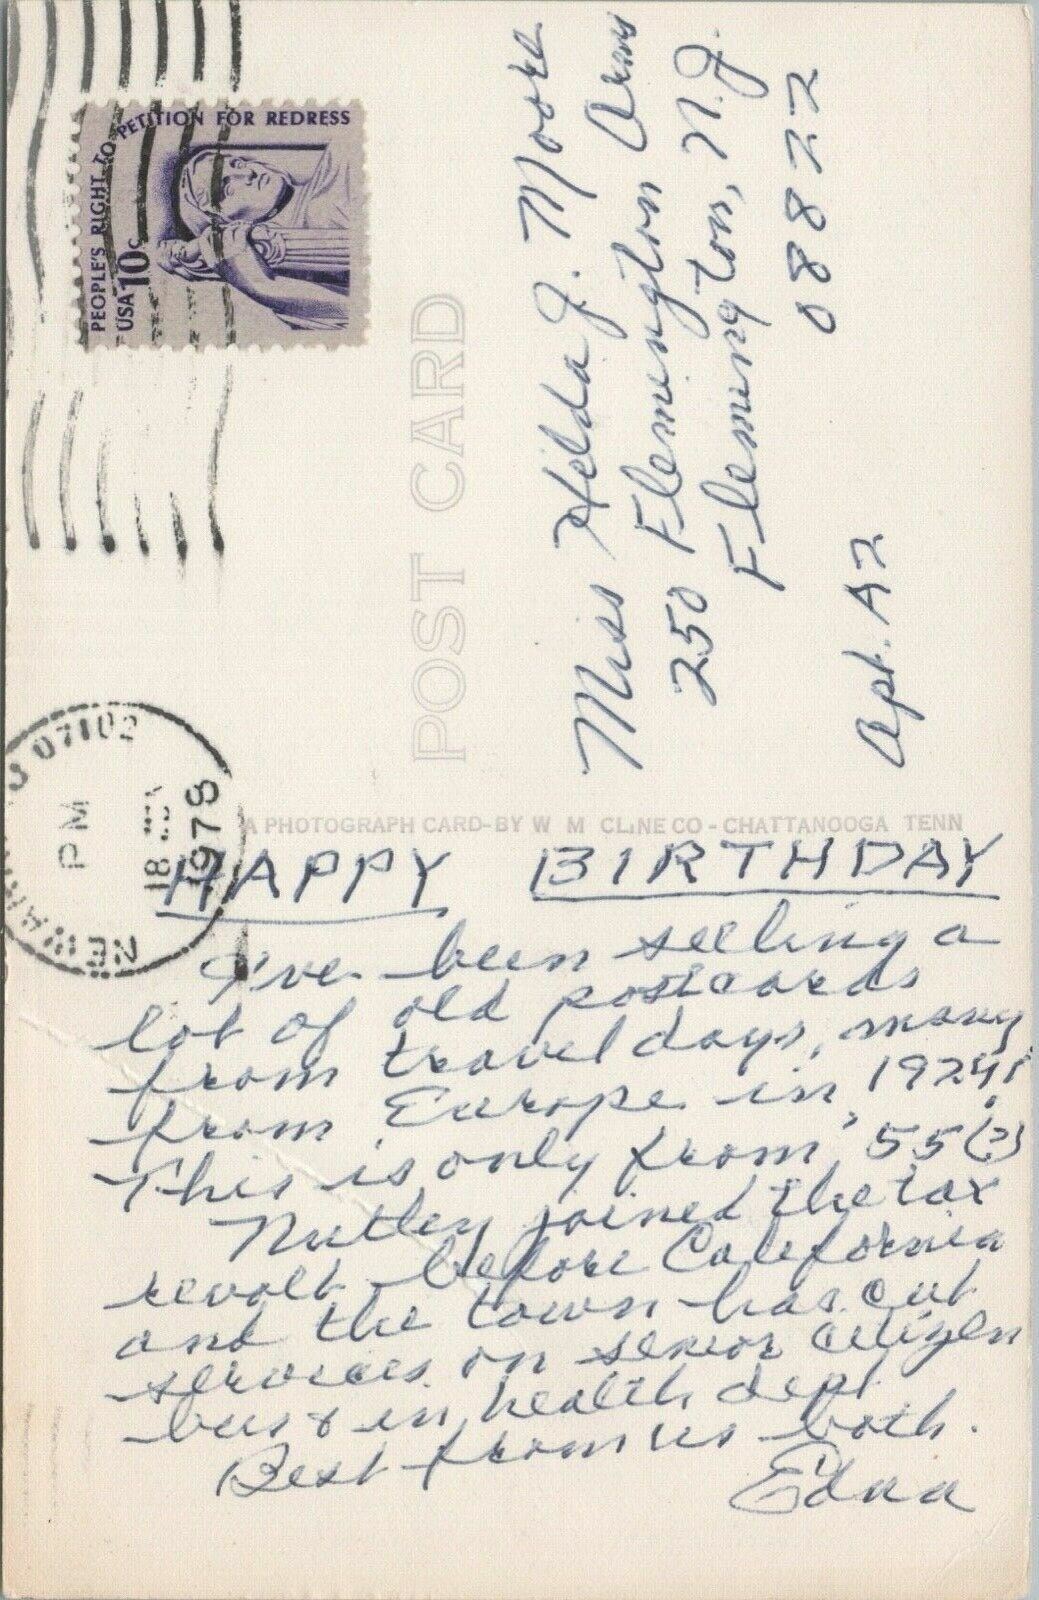 PEOPLE'S RIGHT TO PETITION FOR REDRESS
USA 10c
POST CARD
Miss Hilda J. Moore
250 Flemington Arms
Flemington, N.J.
08822
Apt. A2
NEWARK 07102
PM
18
1978
A PHOTOGRAPH CARD-BY W M CLINE CO - CHATTANOOGA TENN
HAPPY BIRTHDAY
I've been selling a
lot of old postcards
from travel days, many
from Europe in 1924.
This is only from '55(?)
Nutley joined the tax
revolt before California
and the town has cut
services on senior citizen
bus & in health dept.
Best from us both.
Edna